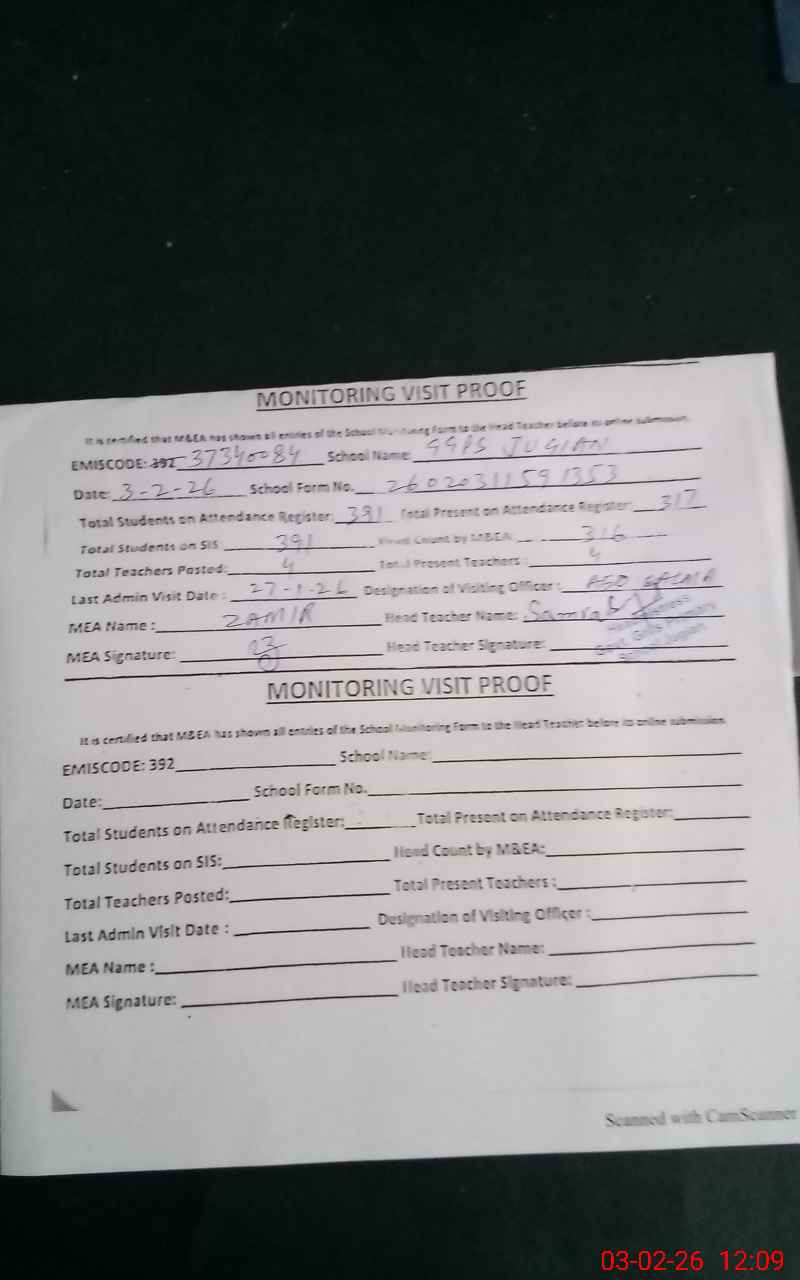 MONITORING VISIT PROOF
It is certified that M&EA has shown all entries of the School Monitoring Form to the Head Teacher before its online submission.
EMISCODE: 392 37340084 School Name: GGPS JUGIAN
Date: 3-2-26 School Form No. 26020311591353
Total Students on Attendance Register: 391 Total Present on Attendance Register: 317
Total Students on SIS 391 Head Count by M&EA: 316
Total Teachers Posted: 4 Total Present Teachers : 4
Last Admin Visit Date : 27-1-26 Designation of Visiting Officer : AEO
MEA Name : ZAMIR Head Teacher Name:
MEA Signature: Head Teacher Signature:
MONITORING VISIT PROOF
It is certified that M&EA has shown all entries of the School Monitoring Form to the Head Teacher before its online submission.
EMISCODE: 392 School Name:
Date: School Form No.
Total Students on Attendance Register: Total Present on Attendance Register:
Total Students on SIS: Head Count by M&EA:
Total Teachers Posted: Total Present Teachers :
Last Admin Visit Date : Designation of Visiting Officer :
MEA Name : Head Teacher Name:
MEA Signature: Head Teacher Signature:
Scanned with CamScanner
03-02-26 12:09